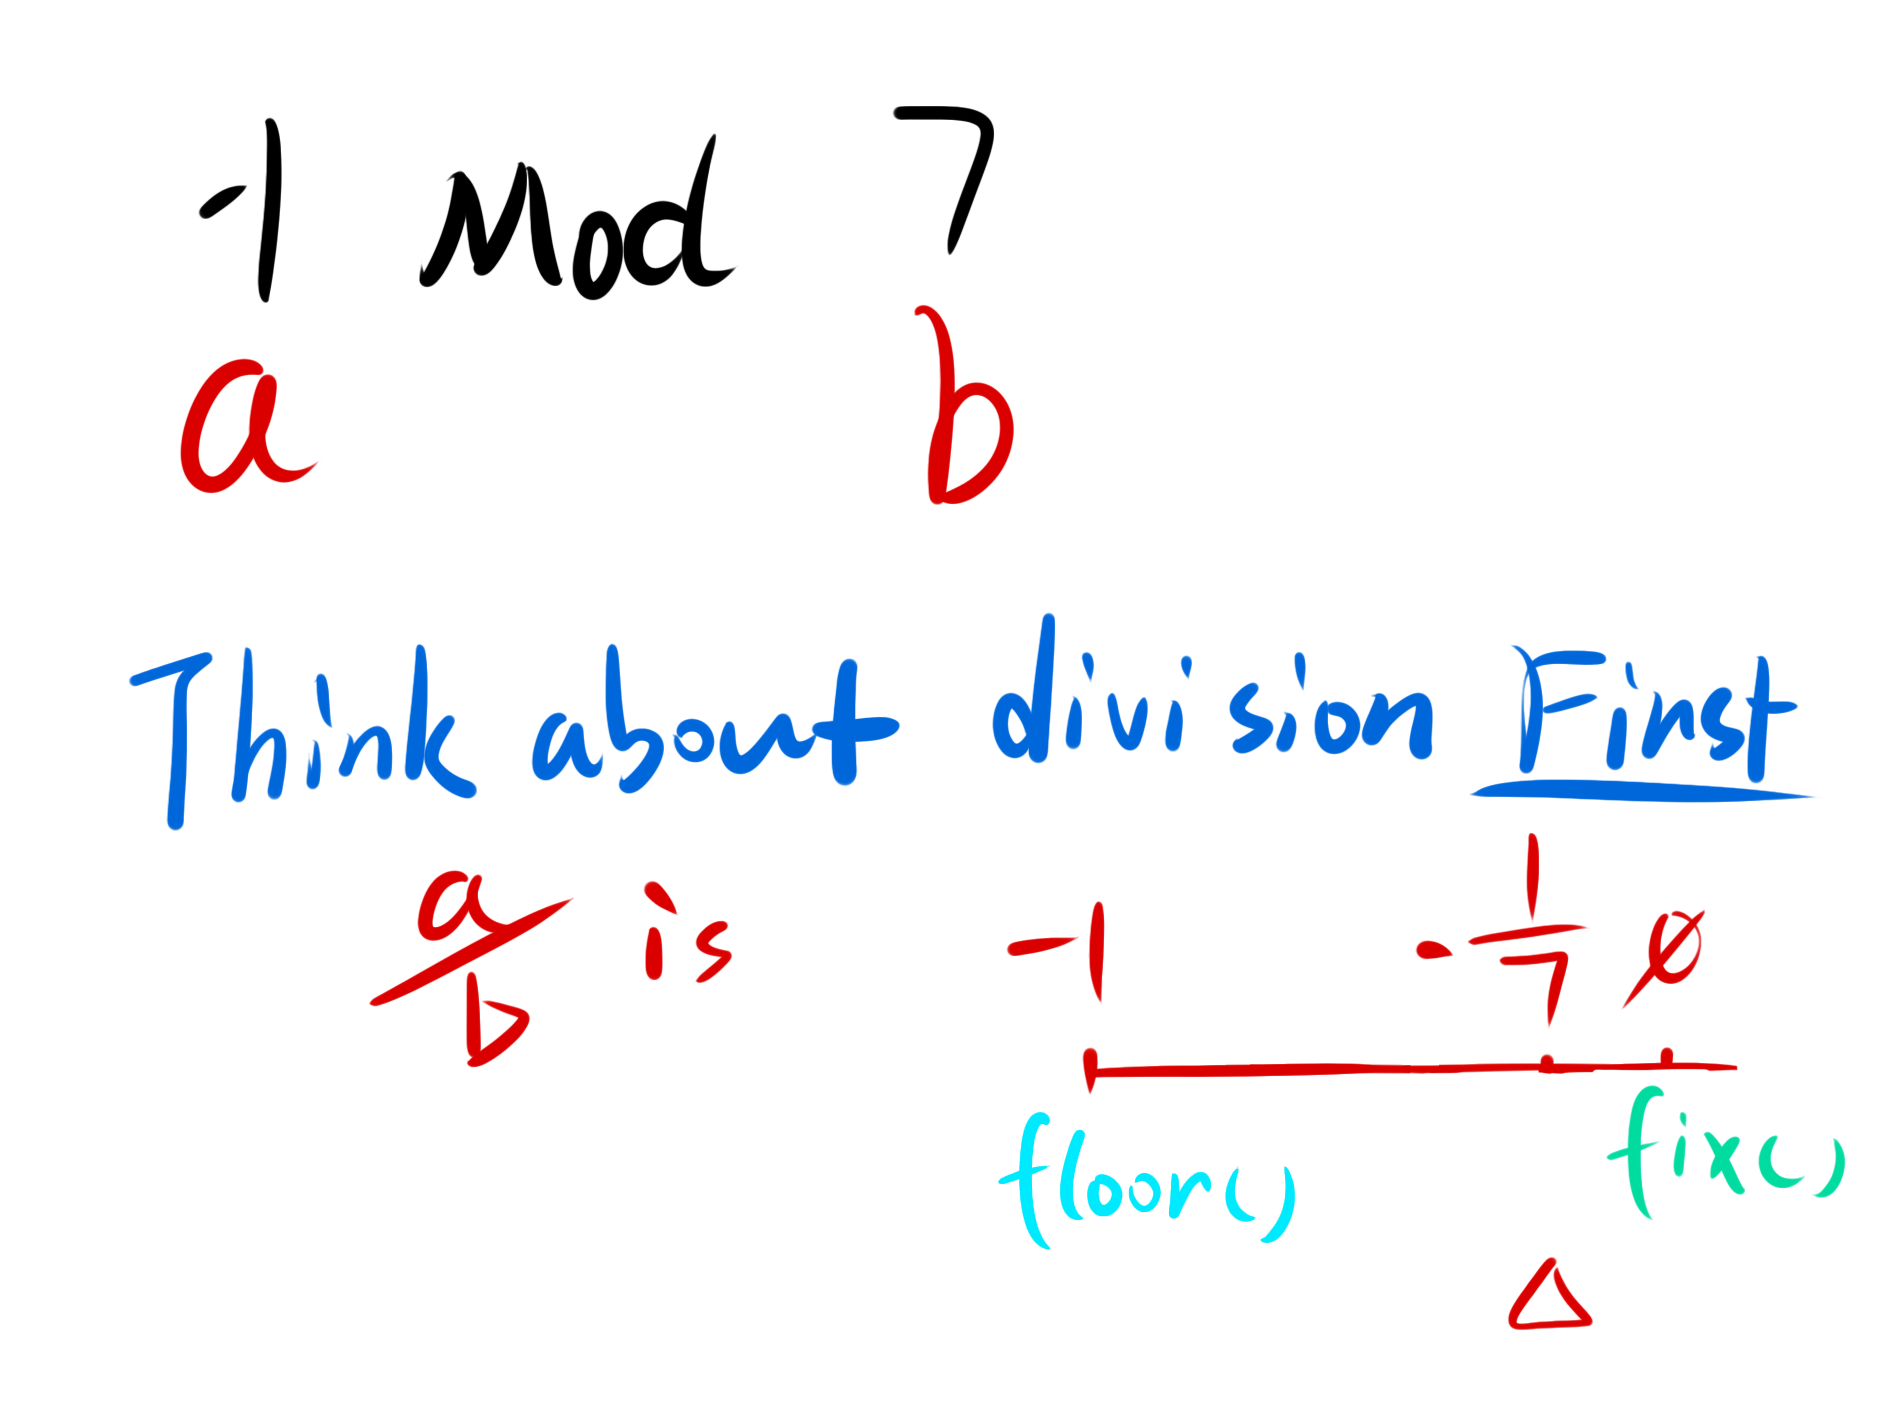 -1 Mod 7
a b
Think about division First
a/b is -1 -1/7 0
floor() fix()